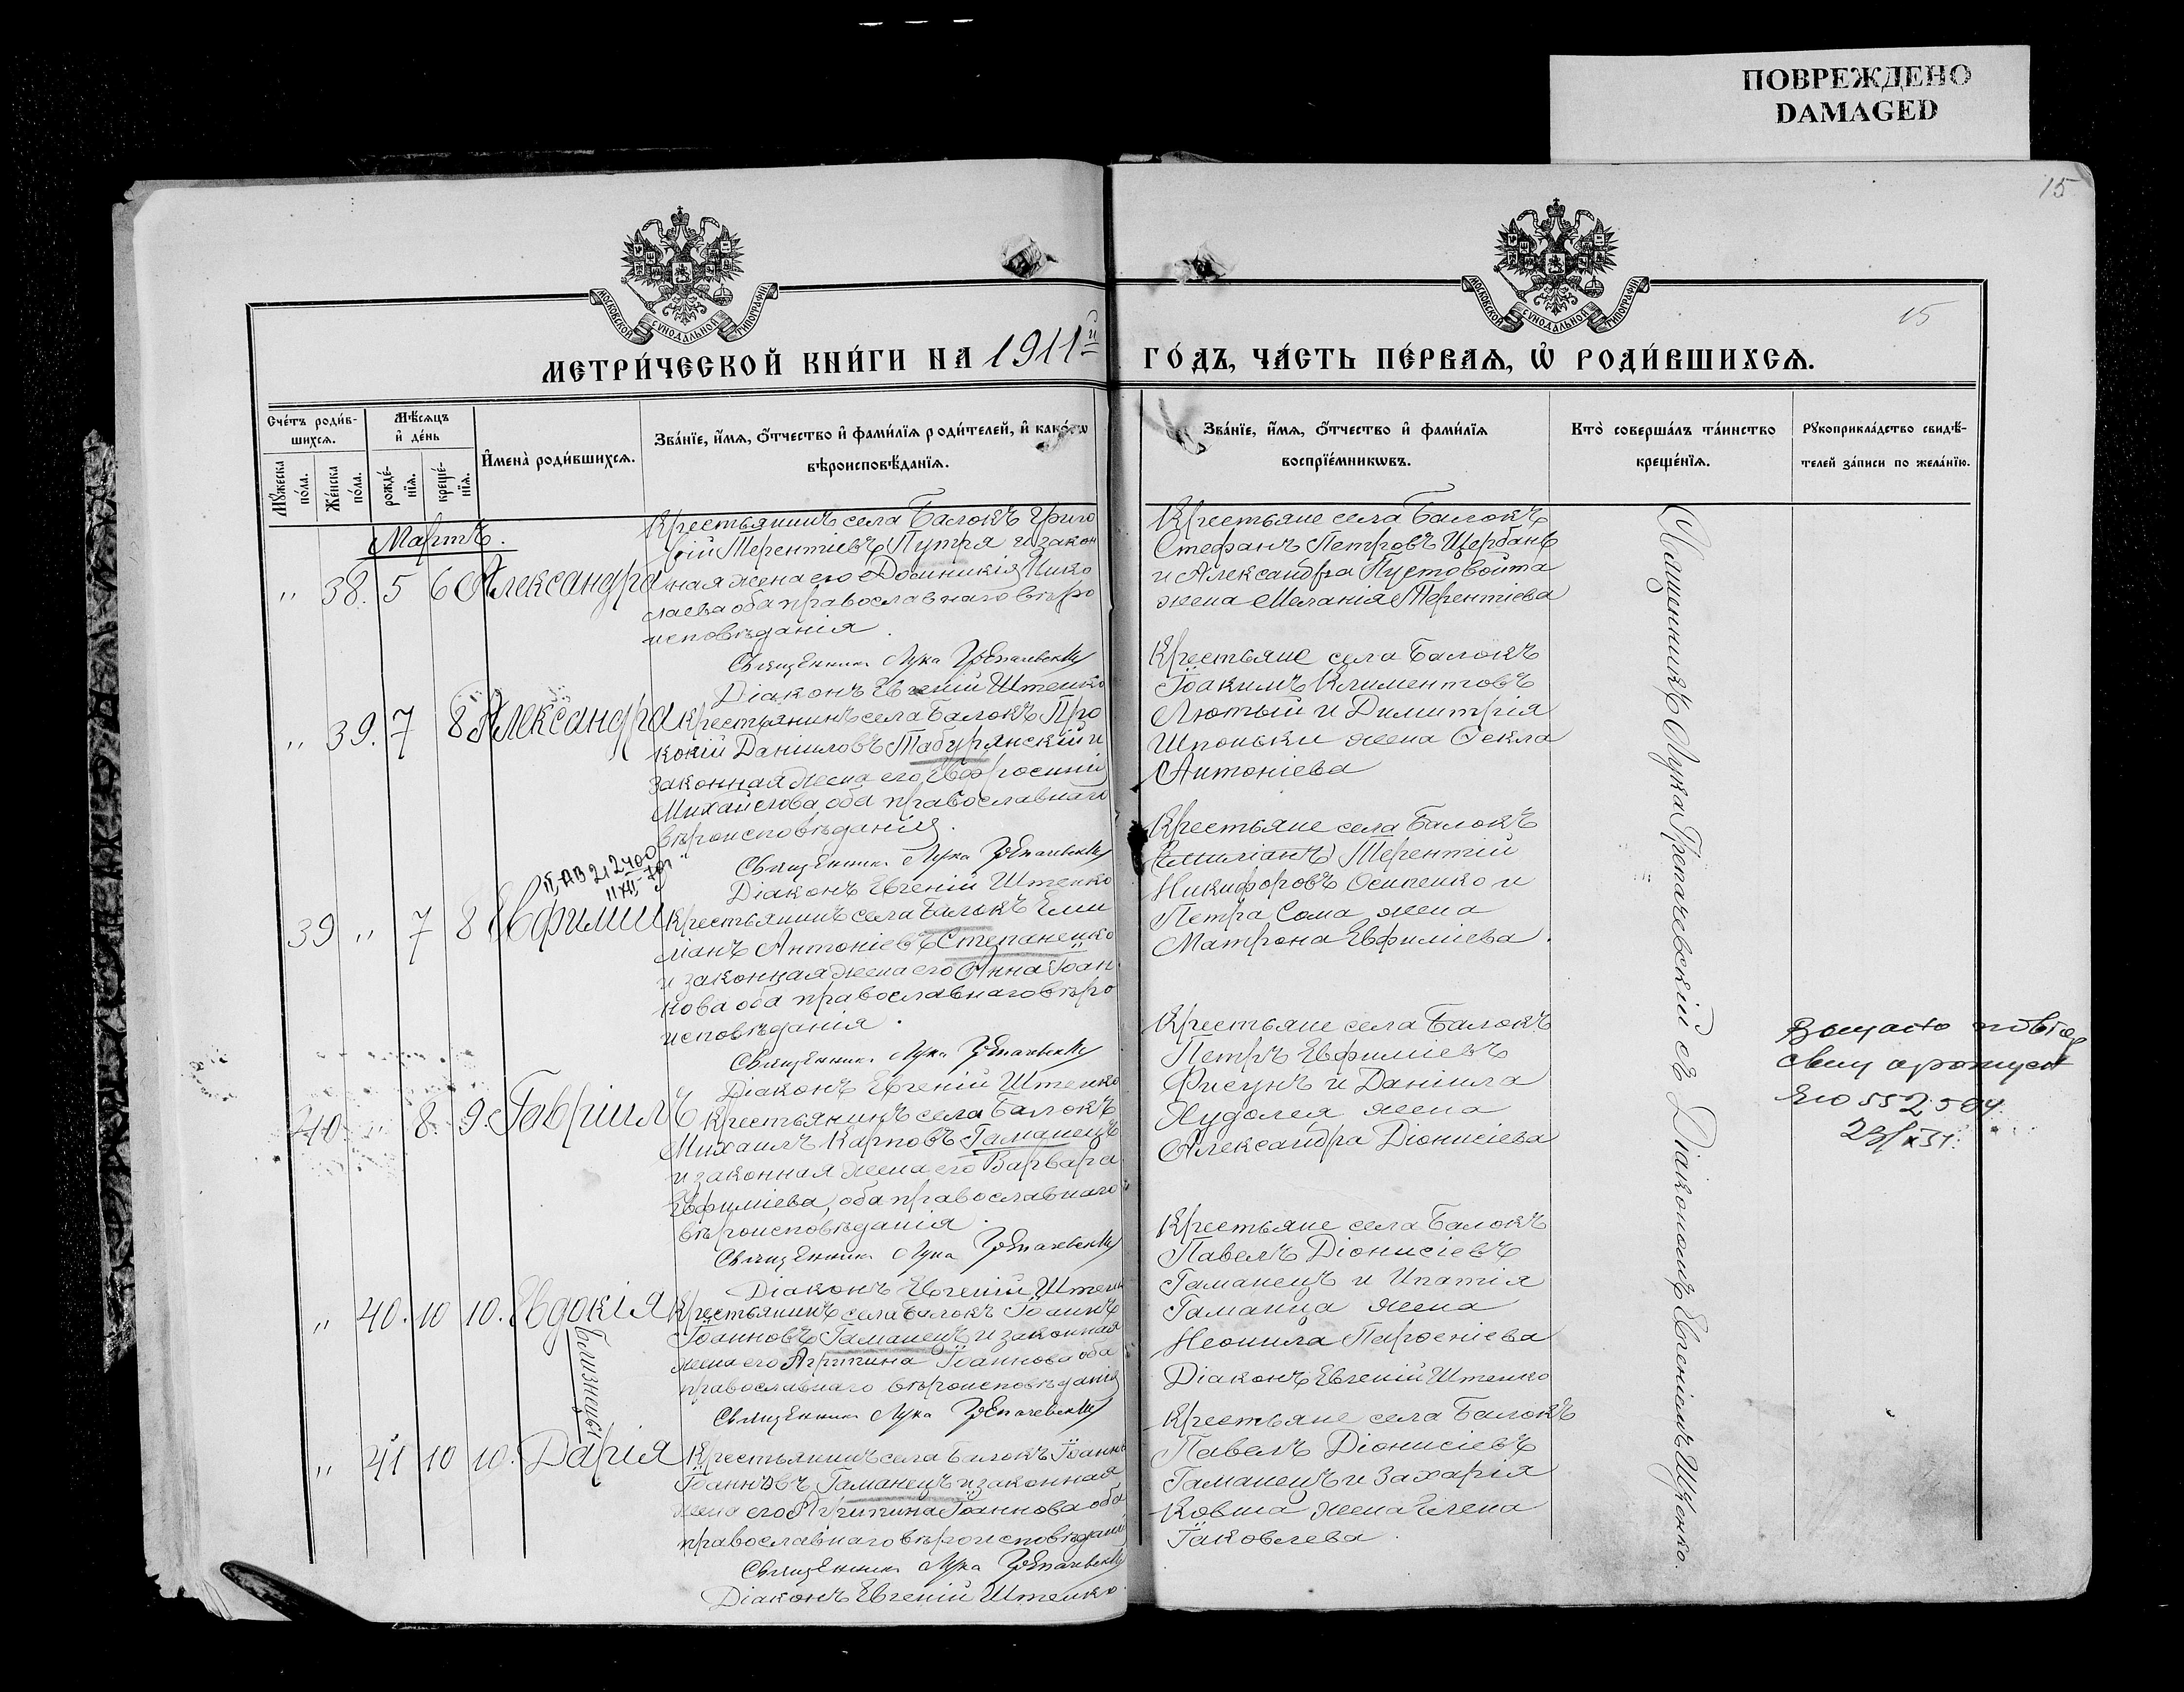 ПОВРЕЖДЕНО
DAMAGED
15
15
МОСКОВСКОЙ СѴНОДАЛЬНОЙ ТИПОГРАФІИ
МОСКОВСКОЙ СѴНОДАЛЬНОЙ ТИПОГРАФІИ
МЕТРИ́ЧЕСКОЙ КНИ́ГИ НА 1911й ГО́ДЪ, ЧА́СТЬ ПЕ́РВАѦ, Ѡ҆ РОДИ́ВШИХСѦ.
Сче́тъ роди́в-
шихсѧ.
Мꙋ́жеска по́ла.
Же́нска по́ла.
Мѣ́сяцъ
и҆ де́нь
рожде́-
нїѧ.
креще́-
нїѧ.
И҆мена̀ роди́вшихсѧ.
Зва́нїе, и҆́мѧ, ѻ҆́тчество и҆ фами́лїѧ роди́телей, и҆ како́гѡ
вѣроисповѣ́данїѧ.
Зва́нїе, и҆́мѧ, ѻ҆́тчество и҆ фами́лїѧ
воспрїе́мникѡвъ.
Кто̀ соверша́лъ та́инство
креще́нїѧ.
Рꙋкоприкла́дство свидѣ́-
телей за́писи по жела́нїю.
Мартъ.
" 38. 5 6 Александра
Крестьянинъ села Балокъ Григо
рій Терентіевъ Путря и закон
ная жена его Домникія Нико
лаева оба православнаго вѣро
исповѣданія.
Священникъ Лука Грепачевскій
Діаконъ Евгеній Штепко
Крестьяне села Балокъ
Стефанъ Петровъ Щербань
и Александра Пустовойта
жена Меланія Терентіева
" 39. 7 8 Александра
Крестьянинъ села Балокъ Про
копій Даніиловъ Табурянскій и
законная жена его Евфросинія
Михайлова оба православнаго
вѣроисповѣданія.
Священникъ Лука Грепачевскій
Діаконъ Евгеній Штепко
Крестьяне села Балокъ
Іоакимъ Климентовъ
Лютый и Димитрія
Шпоньки жена Ѳекла
Антоніева
39 " 7 8 Евфимій
Крестьянинъ села Балокъ Еми
ліанъ Антоніевъ Степаненко
и законная жена его Анна Іоан
нова оба православнаго вѣро
исповѣданія.
Священникъ Лука Грепачевскій
Діаконъ Евгеній Штепко
Крестьяне села Балокъ
Емиліанъ Терентій
Никифоровъ Осипенко и
Петра Сома жена
Матрона Евфиміева.
40 " 8. 9. Гавріилъ
Крестьянинъ села Балокъ
Михаилъ Карповъ Гаманецъ
и законная жена его Варвара
Евфиміева, оба православнаго
вѣроисповѣданія.
Священникъ Лука Грепачевскій
Діаконъ Евгеній Штепко
Крестьяне села Балокъ
Петръ Евфиміевъ
Фисунъ и Даніила
Худолея жена
Александра Діонисіева
" 40. 10 10. Евдокія
Крестьянинъ села Балокъ Іоаннъ
Іоанновъ Гаманецъ и законная
жена его Агрипина Іоаннова оба
православнаго вѣроисповѣданія
Священникъ Лука Грепачевскій
Крестьяне села Балокъ
Павелъ Діонисіевъ
Гаманецъ и Ипатія
Гаманца жена
Неонила Парѳеніева
Діаконъ Евгеній Штепко
Близнецы
" 41 10 10. Дарія
Крестьянинъ села Балокъ Іоаннъ
Іоанновъ Гаманецъ и законная
жена его Агрипина Іоаннова оба
православнаго вѣроисповѣданія
Священникъ Лука Грепачевскій
Діаконъ Евгеній Штепко.
Крестьяне села Балокъ
Павелъ Діонисіевъ
Гаманецъ и Захарія
Ковша жена Елена
Іаковлева.
Священникъ Лука Грепачевскій съ Діакономъ Евгеніемъ Штепко.